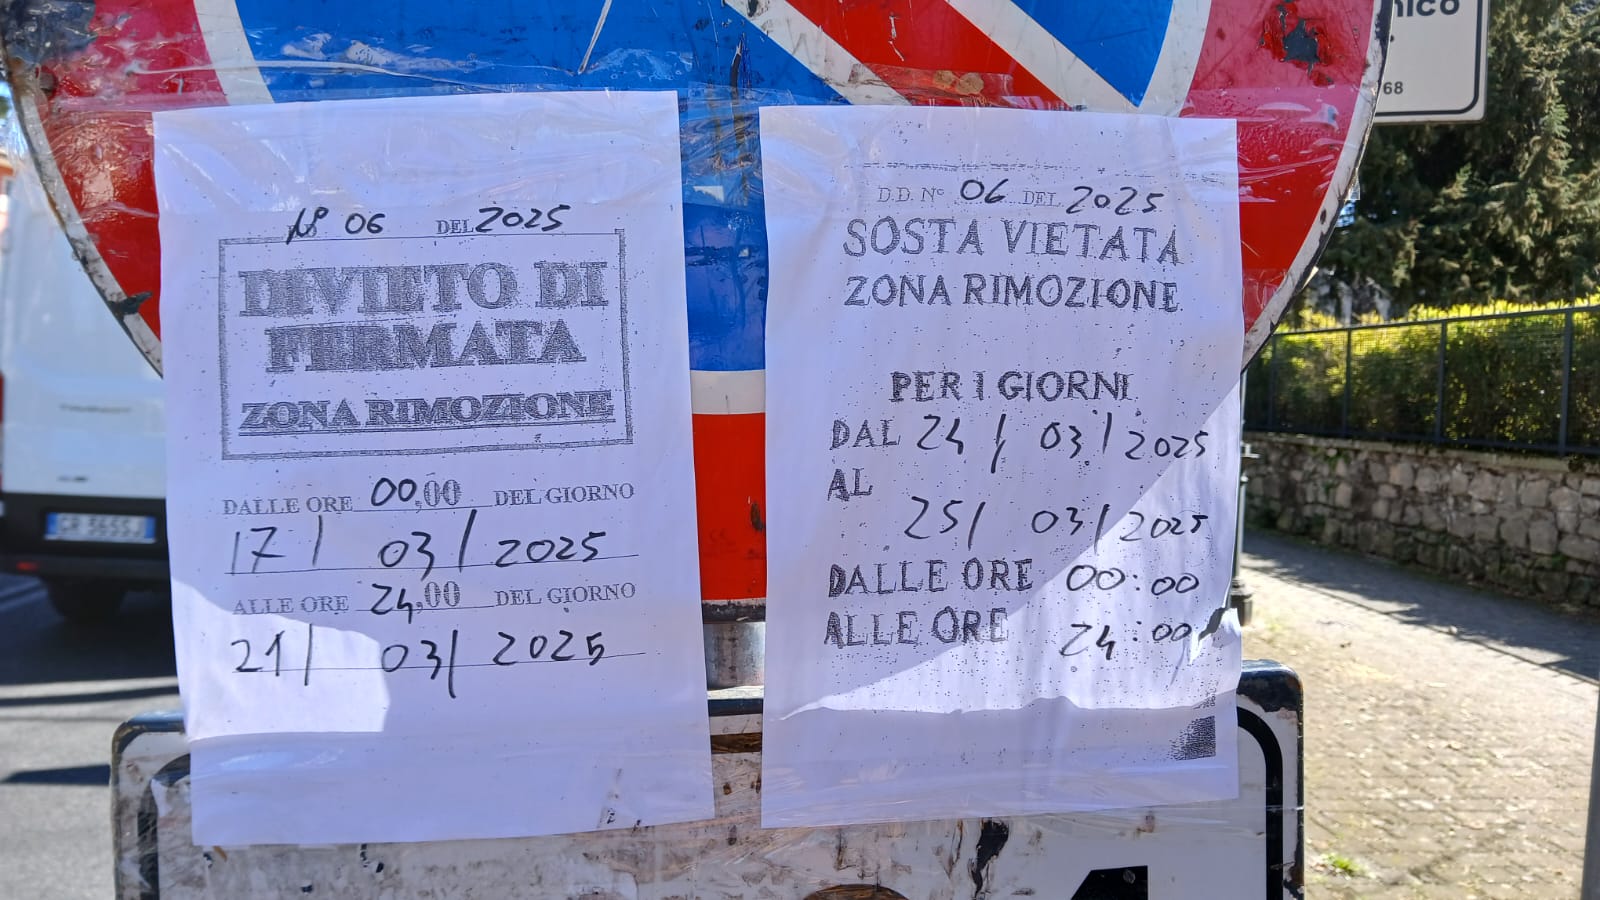 nico
68
N° 06 DEL 2025
DIVIETO DI
FERMATA
ZONA RIMOZIONE
DALLE ORE 00,00 DEL GIORNO
17/03/2025
ALLE ORE 24,00 DEL GIORNO
21/03/2025
D.D. N° 06 DEL 2025
SOSTA VIETATA
ZONA RIMOZIONE
PER I GIORNI
DAL 24/03/2025
AL
25/03/2025
DALLE ORE 00:00
ALLE ORE 24:00